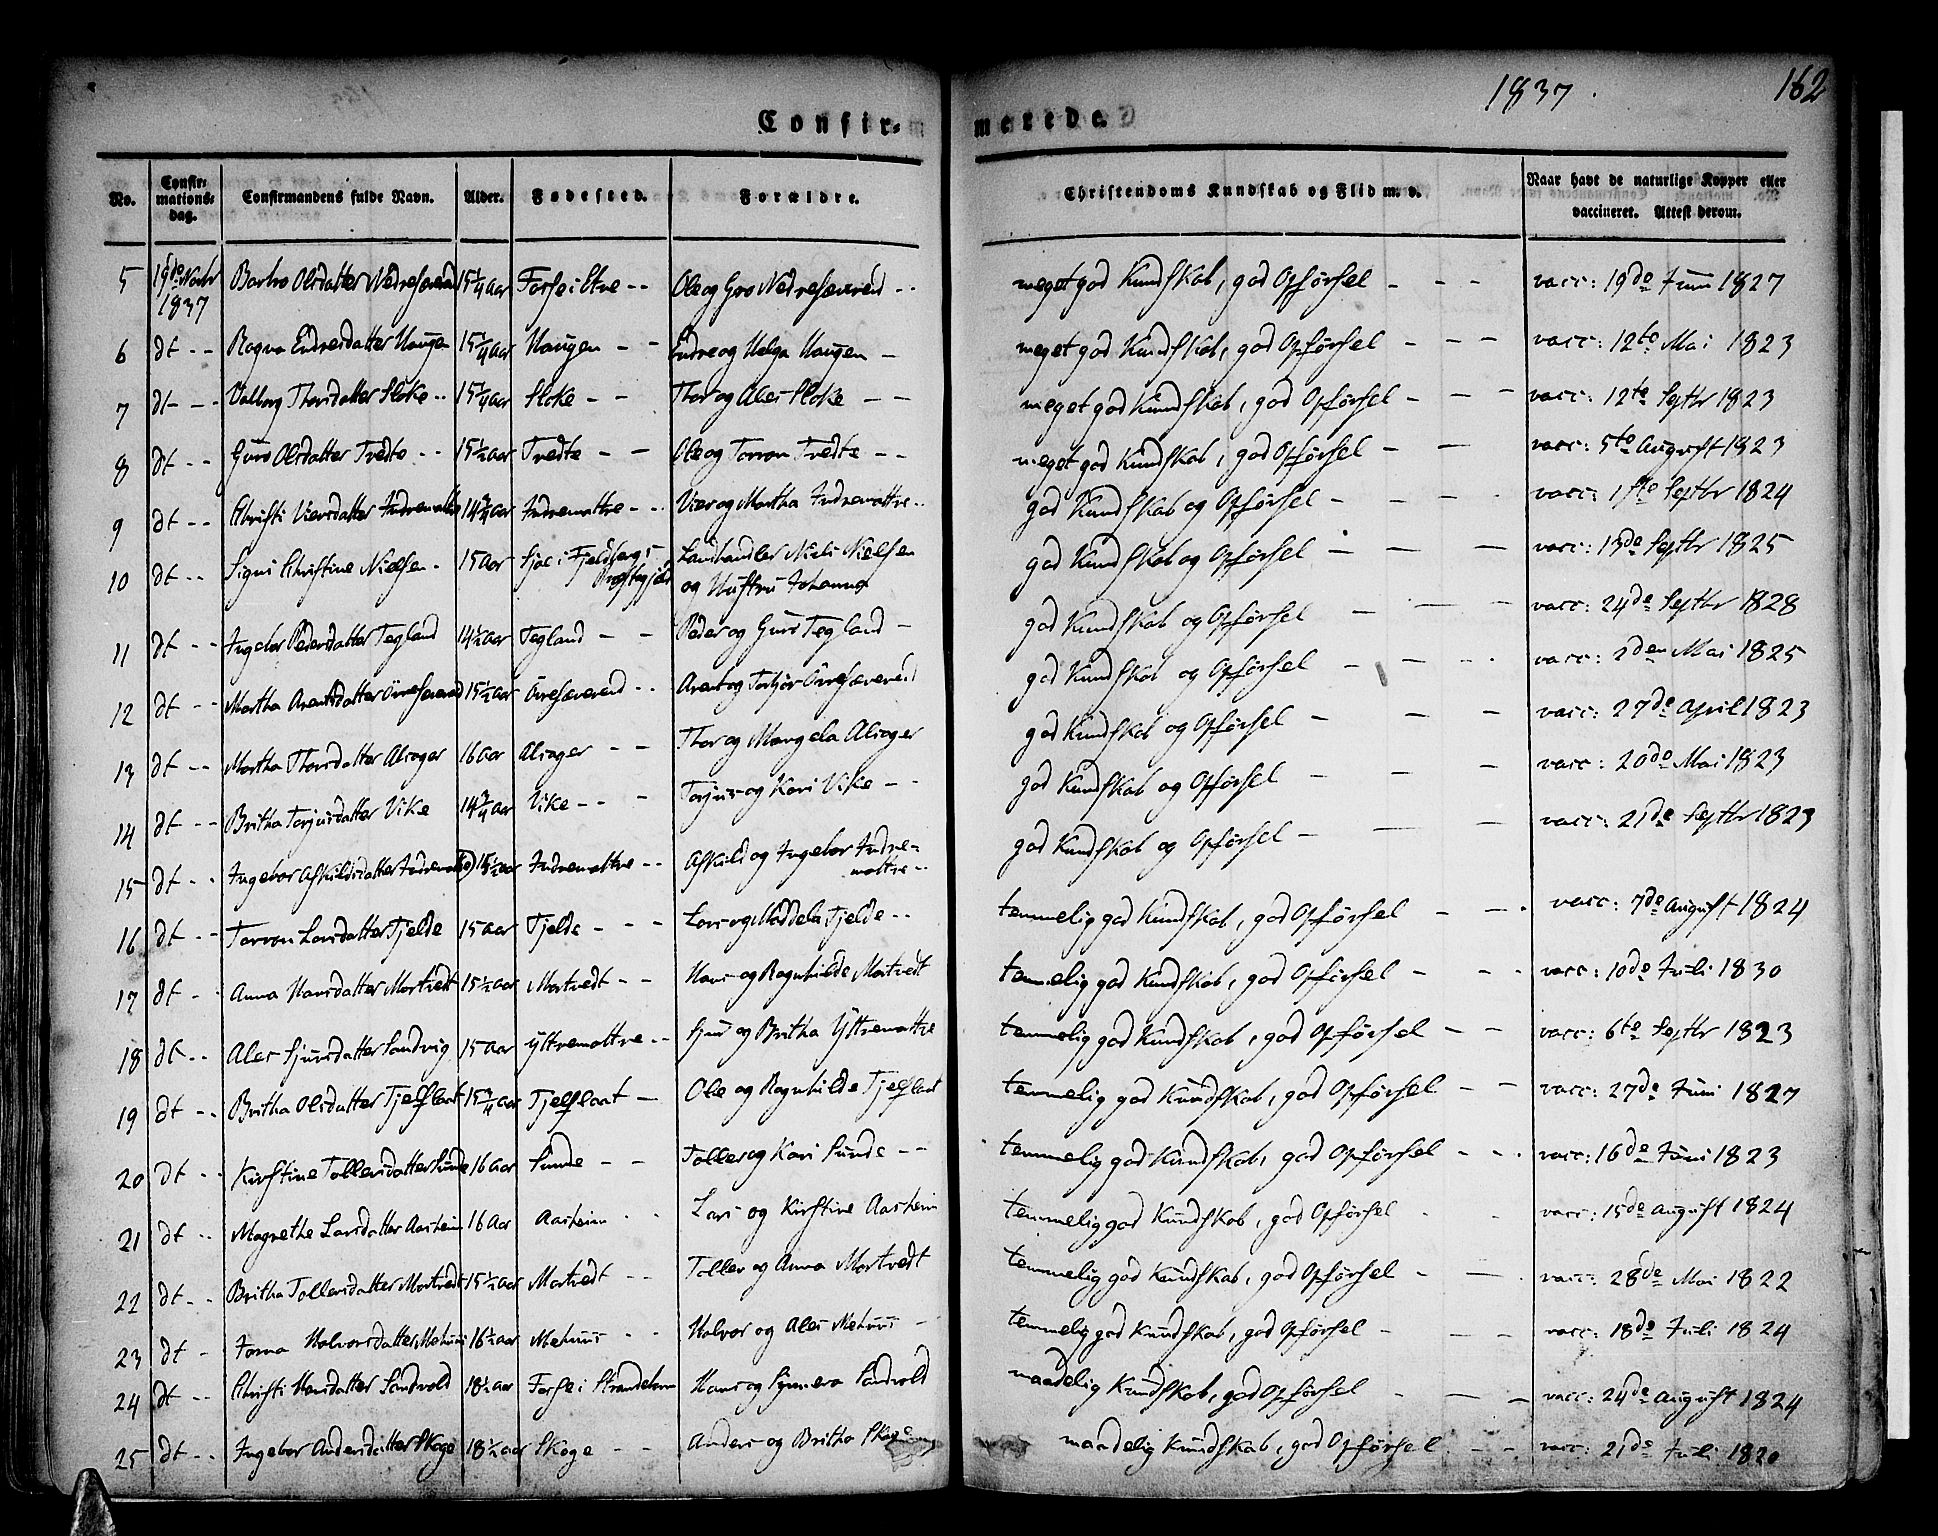 1837.
162
Confir-
merede.
No.
Confir-
mations-
dag.
Confirmandens fulde Navn.
Alder.
Fødested.
Forældre.
Christendoms Kundskab og Flid m. v.
Naar havt de naturlige Kopper eller
vaccineret. Attest derom.
5 19de Novbr 1837 Barbro Olsdatter Nedresæverud 15 1/4 Aar Ole og Gro Nedresæverud -- meget god Kundskab, god Opførsel - - - vacc: 19de Juni 1827
6 dt -- Ragna Endresdatter Haugen 15 1/4 Aar Haugen -- Endre og Helga Haugen - meget god Kundskab, god Opførsel - - - vacc: 12te Mai 1823
7 dt -- Valborg Thorsdatter Støle -- 15 1/4 Aar Thor og Ales meget god Kundskab, god Opførsel - - - vacc: 12te Septbr 1823
8 dt -- Guro Olsdatter Tvedte -- 15 1/2 Aar Tvedte -- Ole og Torvon Tvedte -- meget god Kundskab, god Opførsel - - vacc: 5te August 1823
9 dt -- Christi Viersdatter Indrematre 14 3/4 Aar Indrematre -- Vier og Martha Indrematre -- god Kundskab og Opførsel - - - vacc: 1ste Septbr 1824
10 dt -- Signi Christine Nielsen - 15 Aar i Fjeldbergs Præstegjeld Landhandler Niels Nielsen og Hustru Johanna god Kundskab og Opførsel - - - vacc: 13de Septbr 1825
11 dt -- Ingebor Pedersdatter Tegland 14 1/2 Aar Tegland -- Peder og Guro Tegland - god Kundskab og Opførsel - - - vacc: 24de Septbr 1828
12 dt -- Martha Arentsdatter Øvresæverud 15 1/2 Aar Øvresæverud -- Arent og Torbjør Øvresæverud god Kundskab og Opførsel - - - vacc: 2den Mai 1825
13 dt -- Martha Thorsdatter Alsager 16 Aar Alsager -- Thor og Mangela Alsager god Kundskab og Opførsel - - - vacc: 27de April 1823
14 dt -- Britha Torjusdatter Vike 14 3/4 Aar Vike -- - Torjus og Kari Vike - god Kundskab og Opførsel - - - vacc: 20de Mai 1823
15 dt -- Ingebor Askildsdatter Indrematre 15 1/2 Aar Indrematre -- Askild og Ingebor Indrematre -- god Kundskab og Opførsel - - - vacc: 21de Septbr 1823
16 dt -- Torvon Larsdatter Tjelde 15 Aar Tjelde - -- Lars og Maddela Tjelde -- temmelig god Kundskab, god Opførsel - - vacc: 7de August 1824
17 dt - Anna Hansdatter Mortvedt 15 1/2 Aar Mortvedt -- Hans og Ragnhilde Mortvedt temmelig god Kundskab, god Opførsel - - vacc: 10de Juli 1830
18 dt -- Ales Sjursdatter Sandvig 15 Aar Yttrematre -- Sjur og Britha Yttrematre temmelig god Kundskab, god Opførsel - - vacc: 6te Septbr 1823
19 dt -- Britha Olsdatter Tjelflaat 15 3/4 Aar Tjelflaat - Ole og Ragnhilde Tjelflaat temmelig god Kundskab, god Opførsel - - vacc: 27de Juni 1827
20 dt -- Kirstine Tollersdatter Sunde 16 Aar Sunde -- Toller og Kari Sunde -- temmelig god Kundskab, god Opførsel - - vacc: 16de Juni 1823
21 dt -- Magrethe Larsdatter Aarheim 16 Aar Aarheim -- Lars og Kirstine Aarheim temmelig god Kundskab, god Opførsel - - vacc: 15de August 1824
22 dt -- Britha Tollersdatter Mortvedt 15 1/2 Aar Mortvedt -- Toller og Anna Mortvedt temmelig god Kundskab, god Opførsel - - vacc: 28de Mai 1822
23 dt - Halvorsdatter Mehuus 16 1/2 Aar Mehuus -- Halvor og Ales Mehuus - temmelig god Kundskab, god Opførsel - - - vacc: 18de Juli 1824
24 dt -- Christi Hansdatter Sandvold 18 1/2 Aar Hans og Synneva Sandvold maadelig Kundskab, god Opførsel - - - vacc: 24de August 1824
25 dt -- Ingebor Andersdatter Skoge 18 1/2 Aar Skoge -- Anders og Britha Skoge maadelig Kundskab, god Opførsel - - vacc: 21de Juli 1820